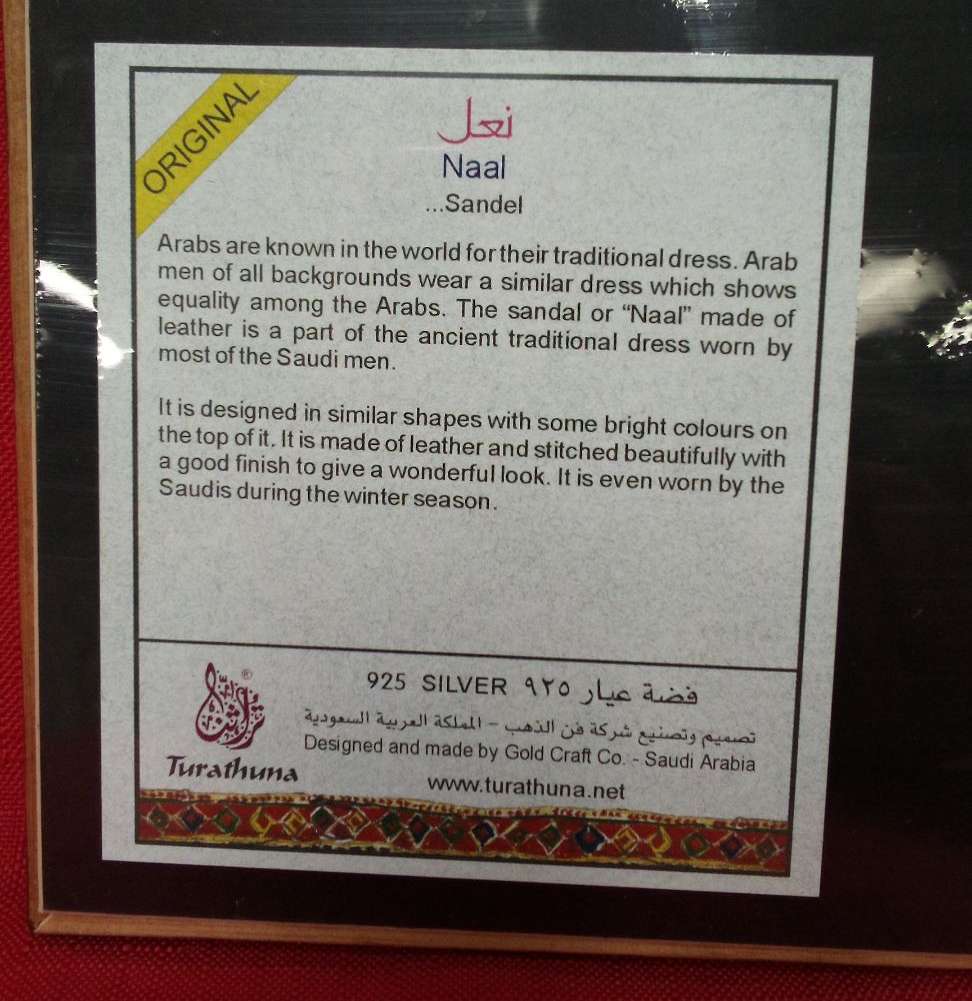 ORIGINAL
نعل
Naal
...Sandel
Arabs are known in the world for their traditional dress. Arab
men of all backgrounds wear a similar dress which shows
equality among the Arabs. The sandal or “Naal” made of
leather is a part of the ancient traditional dress worn by
most of the Saudi men.
It is designed in similar shapes with some bright colours on
the top of it. It is made of leather and stitched beautifully with
a good finish to give a wonderful look. It is even worn by the
Saudis during the winter season.
925 SILVER فضة عيار ٩٢٥
تصميم وتصنيع شركة فن الذهب - المملكة العربية السعودية
Designed and made by Gold Craft Co. - Saudi Arabia
www.turathuna.net
تراثنا ®
Turathuna